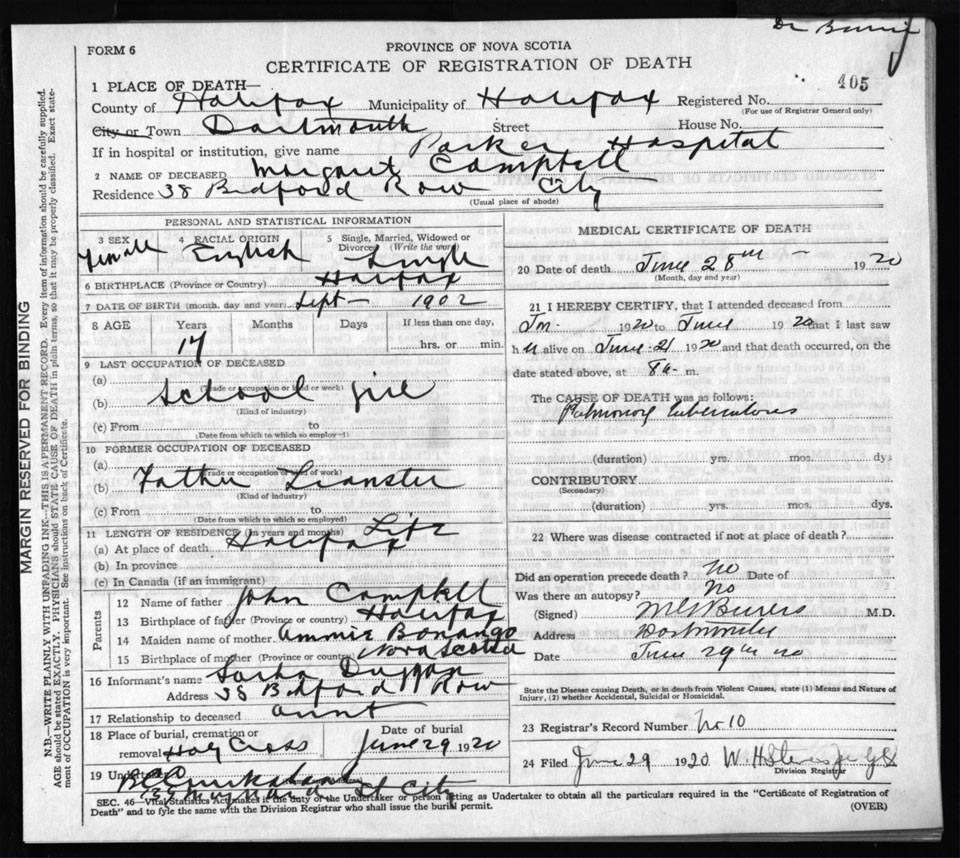 Dr
FORM 6
PROVINCE OF NOVA SCOTIA
CERTIFICATE OF REGISTRATION OF DEATH
405
1 PLACE OF DEATH—
County of Halifax Municipality of Halifax Registered No.
(For use of Registrar General only)
City or Town Dartmouth Street House No.
If in hospital or institution, give name Parker Hospital
2 NAME OF DECEASED Margaret Campbell
Residence 38 Bedford Row City
(Usual place of abode)
PERSONAL AND STATISTICAL INFORMATION
3 SEX 4 RACIAL ORIGIN 5 Single, Married, Widowed or Divorced (Write the word)
Female English Single
6 BIRTHPLACE (Province or Country) Halifax
7 DATE OF BIRTH (month, day and year) Sept— 1902
8 AGE Years Months Days If less than one day,
17 hrs. or min.
9 LAST OCCUPATION OF DECEASED
(a)
(Trade or occupation or kind of work)
(b) School girl
(Kind of industry)
(c) From to
(Date from which to which so employed)
10 FORMER OCCUPATION OF DECEASED
(a)
(Trade or occupation or kind of work)
(b) Father
(Kind of industry)
(c) From to
(Date from which to which so employed)
11 LENGTH OF RESIDENCE (in years and months) Life
(a) At place of death Halifax
(b) In province
(c) In Canada (if an immigrant)
Parents
12 Name of father John Campbell
13 Birthplace of father (Province or country) Halifax
14 Maiden name of mother Ammie
15 Birthplace of mother (Province or country) Nova Scotia
16 Informant's name
Address 38 Bedford Row
17 Relationship to deceased aunt
18 Place of burial, cremation or removal Holy Cross
Date of burial June 29 1920
19 Undertaker
St City
MEDICAL CERTIFICATE OF DEATH
20 Date of death June 28th — 1920
(Month, day and year)
21 I HEREBY CERTIFY, that I attended deceased from
1920 to June 1920 that I last saw
h alive on June 21 1920 and that death occurred, on the
date stated above, at 8 a— m.
The CAUSE OF DEATH was as follows:
Pulmonary Tuberculosis
(duration) yrs. mos. dys
CONTRIBUTORY
(Secondary)
(duration) yrs. mos. dys.
22 Where was disease contracted if not at place of death?
Did an operation precede death? no Date of
Was there an autopsy? no
(Signed) M.D.
Address
Date June 29th
State the Disease causing Death, or in death from Violent Causes, state (1) Means and Nature of
Injury, (2) whether Accidental, Suicidal or Homicidal.
23 Registrar's Record Number No. 10
24 Filed June 29 1920 W. H.
Division Registrar
SEC. 46—Vital Statistics Act makes it the duty of the Undertaker or person acting as Undertaker to obtain all the particulars required in the "Certificate of Registration of
Death" and to fyle the same with the Division Registrar who shall issue the burial permit. (OVER)
MARGIN RESERVED FOR BINDING
N.B.—WRITE PLAINLY WITH UNFADING INK—THIS IS A PERMANENT RECORD. Every item of information should be carefully supplied.
AGE should be stated EXACTLY. PHYSICIANS should STATE CAUSE OF DEATH in plain terms, so that it may be properly classified. Exact statement of OCCUPATION is very important. See instructions on back of Certificate.